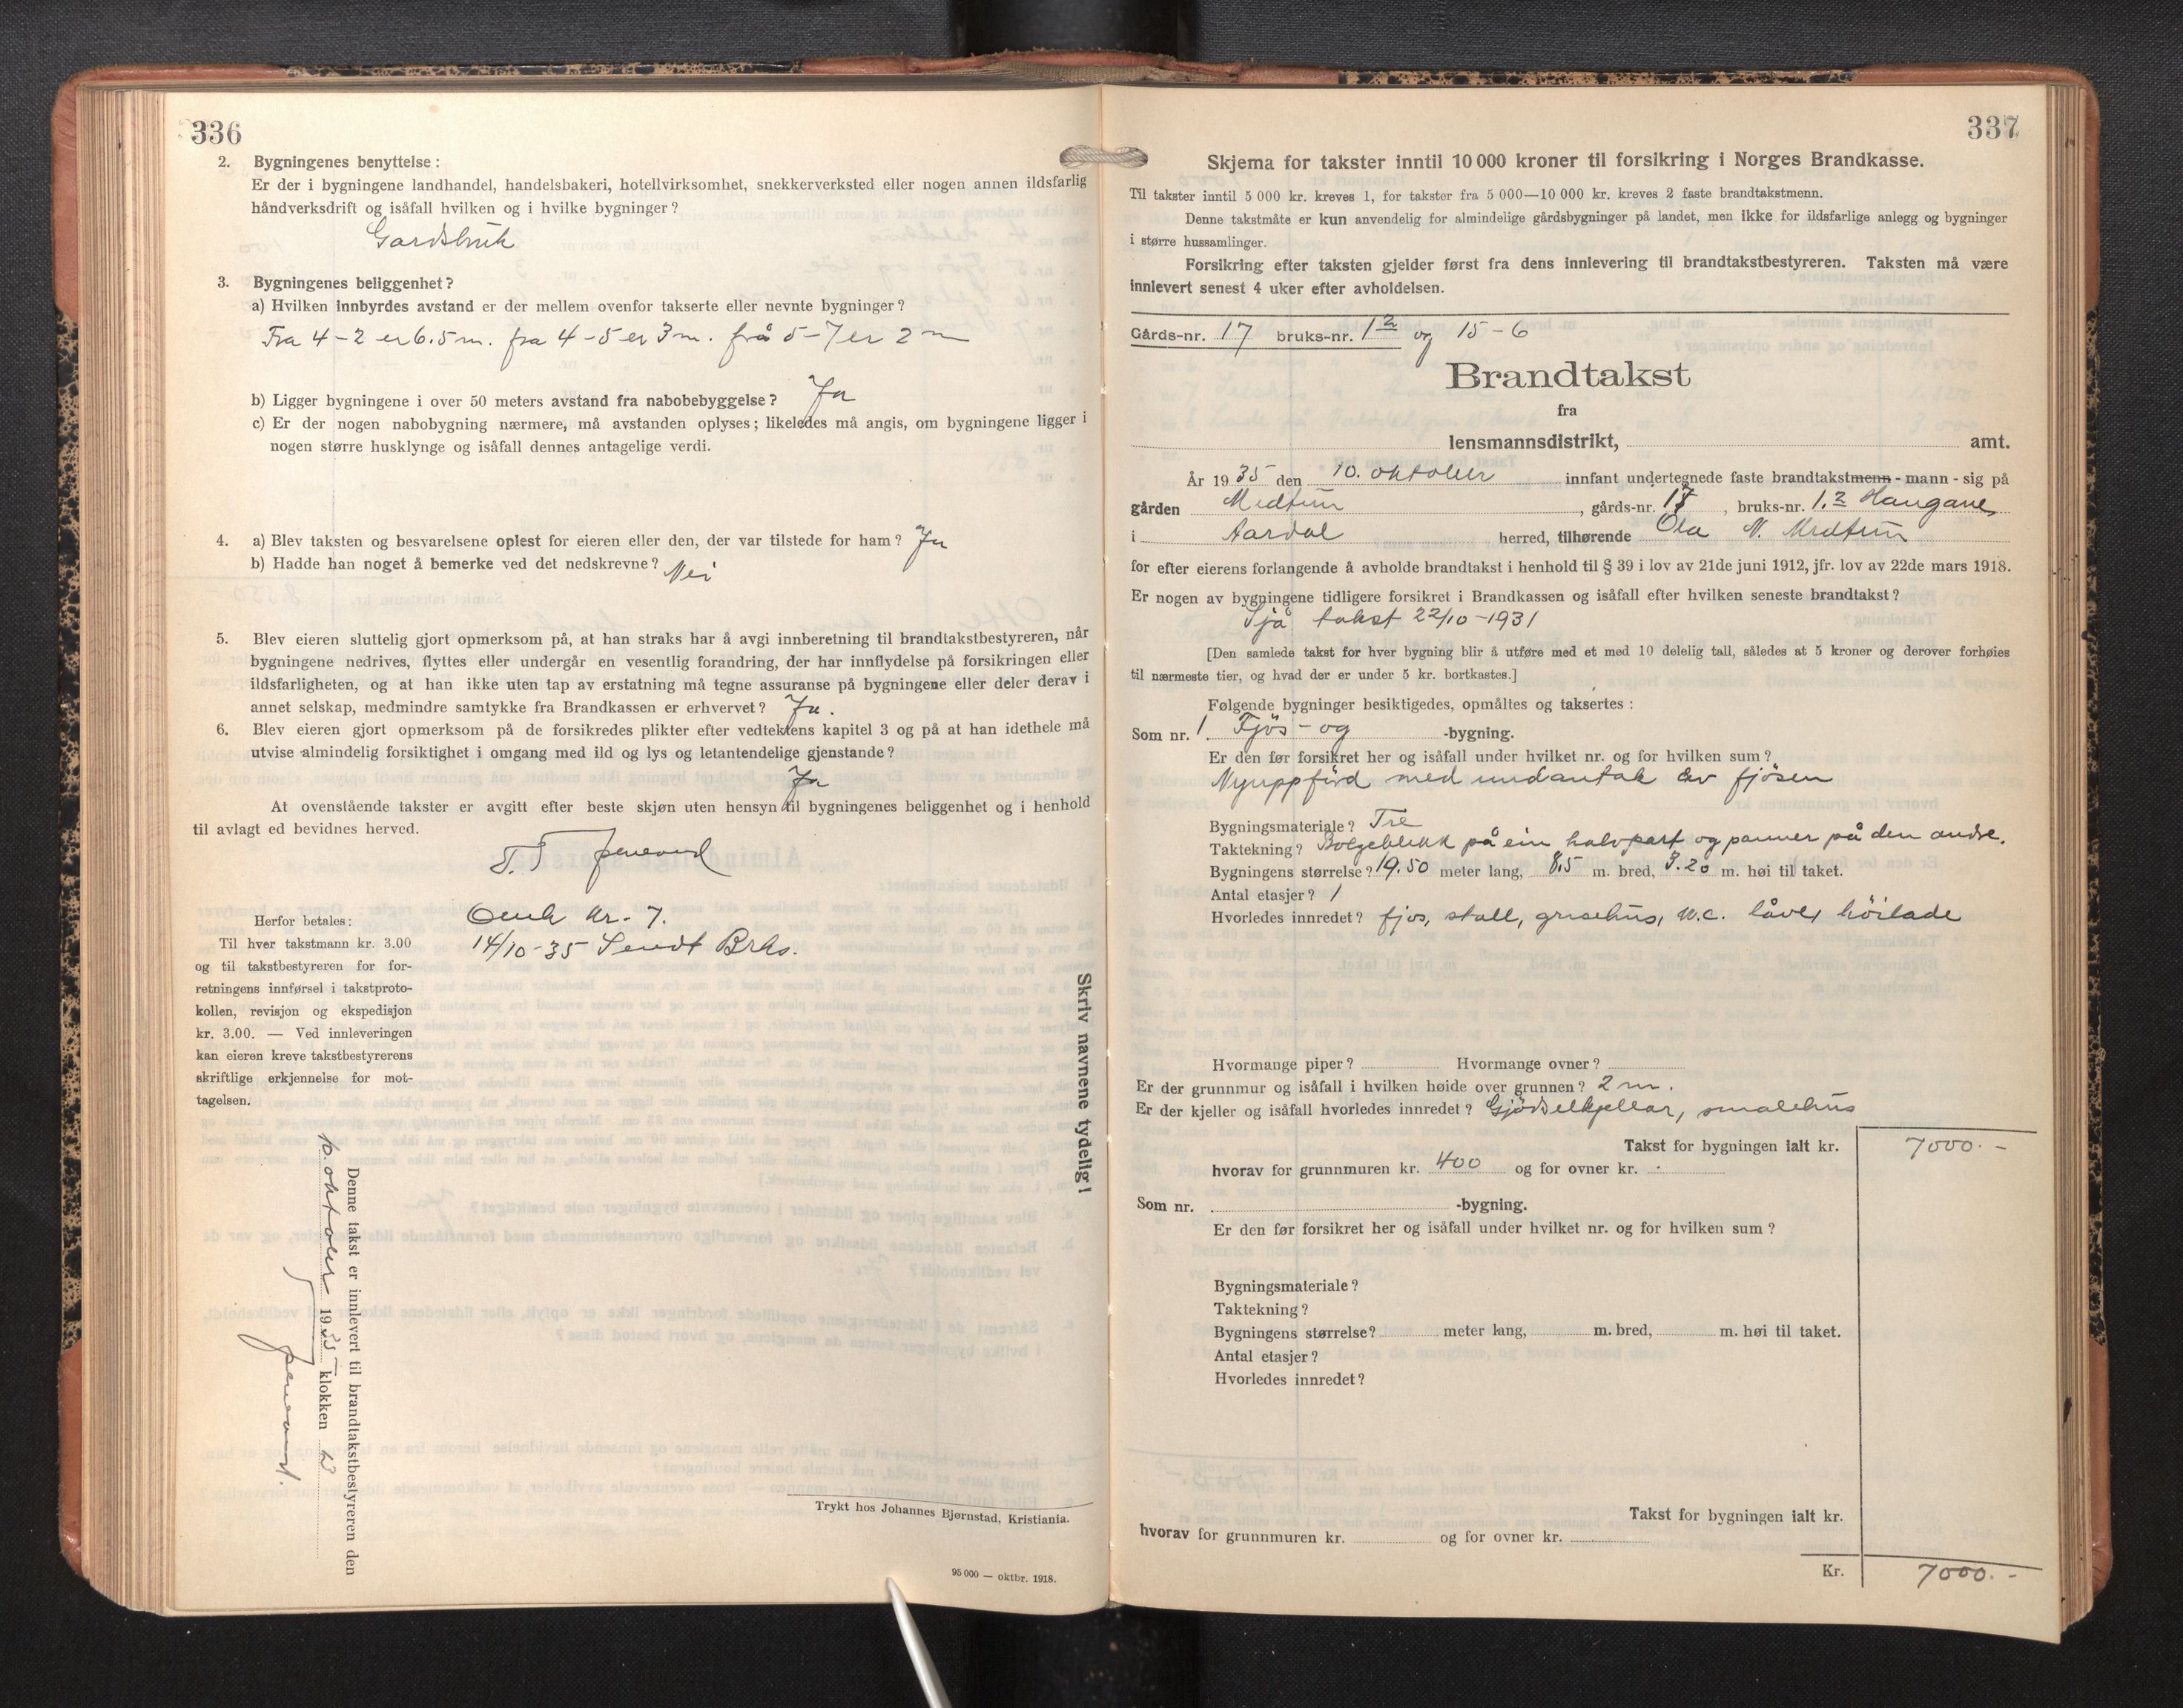 336
2. Bygningenes benyttelse:
Er der i bygningene landhandel, handelsbakeri, hotellvirksomhet, snekkerverksted eller nogen annen ildsfarlig
håndverksdrift og isåfall hvilken og i hvilke bygninger?
Gardsbruk
3. Bygningenes beliggenhet?
a) Hvilken innbyrdes avstand er der mellem ovenfor takserte eller nevnte bygninger?
Fra 4-2 er 6.5 m. fra 4-5 er 3 m. frå 5-7 er 2 m
b) Ligger bygningene i over 50 meters avstand fra nabobebyggelse? Ja
c) Er der nogen nabobygning nærmere, må avstanden oplyses; likeledes må angis, om bygningene ligger i
nogen større husklynge og isåfall dennes antagelige verdi.
4. a) Blev taksten og besvarelsene oplest for eieren eller den, der var tilstede for ham? Ja
b) Hadde han noget å bemerke ved det nedskrevne? Nei
5. Blev eieren sluttelig gjort opmerksom på, at han straks har å avgi innberetning til brandtakstbestyreren, når
bygningene nedrives, flyttes eller undergår en vesentlig forandring, der har innflydelse på forsikringen eller
ildsfarligheten, og at han ikke uten tap av erstatning må tegne assuranse på bygningene eller deler derav i
annet selskap, medmindre samtykke fra Brandkassen er erhvervet? Ja.
6. Blev eieren gjort opmerksom på de forsikredes plikter efter vedtektens kapitel 3 og på at han idethele må
utvise almindelig forsiktighet i omgang med ild og lys og letantendelige gjenstande?
Ja
At ovenstående takster er avgitt efter beste skjøn uten hensyn til bygningenes beliggenhet og i henhold
til avlagt ed bevidnes herved.
T. T
Herfor betales:
Til hver takstmann kr. 3.00
og til takstbestyreren for for-
retningens innførsel i takstproto-
kollen, revisjon og ekspedisjon
kr. 3.00. — Ved innleveringen
kan eieren kreve takstbestyrerens
skriftlige erkjennelse for mot-
tagelsen.
kr. 7.
14/10-35 Sendt Brks.
Skriv navnene tydelig!
Denne takst er innlevert til brandtakstbestyreren den
10. oktober 1935 klokken
Trykt hos Johannes Bjørnstad, Kristiania.
95 000 — oktbr. 1918.
337
Skjema for takster inntil 10 000 kroner til forsikring i Norges Brandkasse.
Til takster inntil 5 000 kr. kreves 1, for takster fra 5 000—10 000 kr. kreves 2 faste brandtakstmenn.
Denne takstmåte er kun anvendelig for almindelige gårdsbygninger på landet, men ikke for ildsfarlige anlegg og bygninger
i større hussamlinger.
Forsikring efter taksten gjelder først fra dens innlevering til brandtakstbestyreren. Taksten må være
innlevert senest 4 uker efter avholdelsen.
Gårds-nr. 17 bruks-nr. 1 2 og 15-6
Brandtakst
fra
lensmannsdistrikt, amt.
År 1935 den 10. oktober innfant undertegnede faste brandtakstmenn - mann - sig på
gården Midtun, gårds-nr. 17, bruks-nr. 1.2 Haugane
i Aardal herred, tilhørende Ola N. Midtun
for efter eierens forlangende å avholde brandtakst i henhold til § 39 i lov av 21de juni 1912, jfr. lov av 22de mars 1918.
Er nogen av bygningene tidligere forsikret i Brandkassen og isåfall efter hvilken seneste brandtakst?
Sjå takst 22/10-1931
[Den samlede takst for hver bygning blir å utføre med et med 10 delelig tall, således at 5 kroner og derover forhøies
til nærmeste tier, og hvad der er under 5 kr. bortkastes.]
Følgende bygninger besiktigedes, opmåltes og taksertes:
Som nr. 1. Fjøs- og -bygning.
Er den før forsikret her og isåfall under hvilket nr. og for hvilken sum?
Nyuppførd med undantak av fjøsen
Bygningsmateriale? Tre
Taktekning? Bolgeblekk på ein halvpart og panner på den andre.
Bygningens størrelse? 19.50 meter lang, 8.5 m. bred, 3.20 m. høi til taket.
Antal etasjer? 1
Hvorledes innredet? fjos, stall, grisehus, W.C. låve, høilade
Hvormange piper? Hvormange ovner?
Er der grunnmur og isåfall i hvilken høide over grunnen? 2 m.
Er der kjeller og isåfall hvorledes innredet? Gjødselkjellar, smalehus
Takst for bygningen ialt kr. 7000.-
hvorav for grunnmuren kr. 400 og for ovner kr.
Som nr. -bygning.
Er den før forsikret her og isåfall under hvilket nr. og for hvilken sum?
Bygningsmateriale?
Taktekning?
Bygningens størrelse? meter lang, m. bred, m. høi til taket.
Antal etasjer?
Hvorledes innredet?
Takst for bygningen ialt kr.
hvorav for grunnmuren kr. og for ovner kr.
Kr. 7000.-